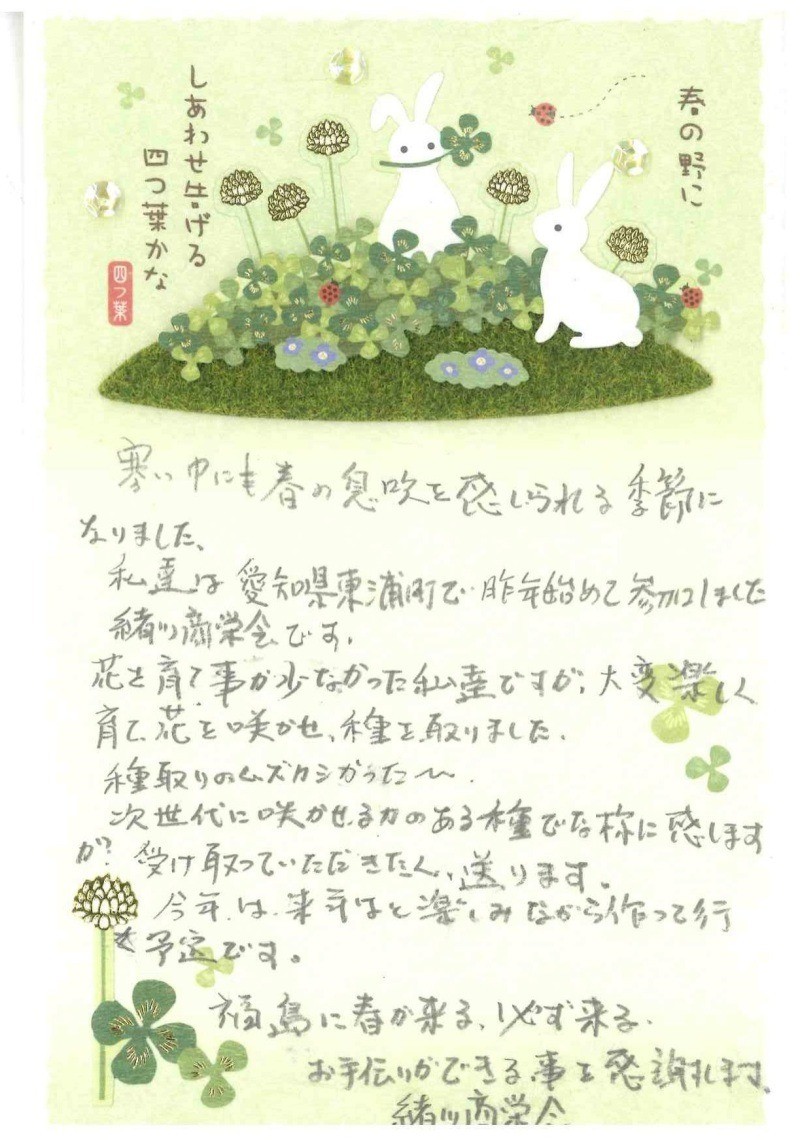 春の野に
しあわせ告げる
四つ葉かな
四つ葉
寒い中にも春の息吹を感じられる季節に
なりました、
私達は愛知県東浦町で昨年始めて参加しました
緒川商栄会です。
花を育て事が少なかった私達ですが、大変楽しく
育て、花を咲かせ、種を取りました。
種取りのムズカシかった〜。
次世代に咲かせる力のある種でな様に感します
が? 受け取っていただきたく、送ります。
今年は、来年はと楽しみながら作って行
く予定です。
福島に春が来る、必ず来る。
お手伝いができる事を感謝します。
緒川商栄会